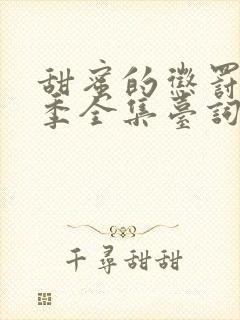 甜蜜的懲罰
季全集臺詞
千尋甜甜